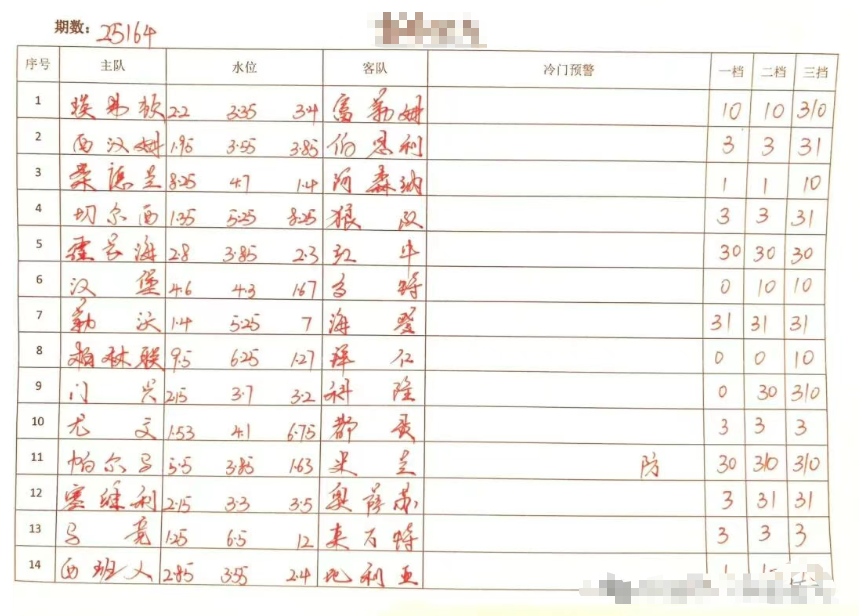 期数: 25164
序号 主队 水位 客队 冷门预警 一档 二档 三挡
1 埃弗顿 2.2 3.35 3.4 富勒姆 10 10 310
2 西汉姆 1.95 3.55 3.85 伯恩利 3 3 31
3 桑德兰 8.25 4.7 1.4 阿森纳 1 1 10
4 切尔西 1.35 5.25 8.25 狼队 3 3 31
5 霍芬海 2.8 3.85 2.3 红牛 30 30 30
6 汉堡 4.6 4.3 1.67 多特 0 10 10
7 勒沃 1.4 5.25 7 海登 31 31 31
8 柏林联 9.5 6.25 1.27 拜仁 0 0 10
9 门兴 2.15 3.7 3.2 科隆 0 30 310
10 尤文 1.53 4.1 6.75 都灵 3 3 3
11 帕尔马 5.5 3.85 1.63 米兰 防 30 310 310
12 塞维利 2.15 3.3 3.5 奥萨苏 3 31 31
13 马竞 1.25 6.5 12 莱万特 3 3 3
14 西班人 2.85 3.55 2.4 比利亚